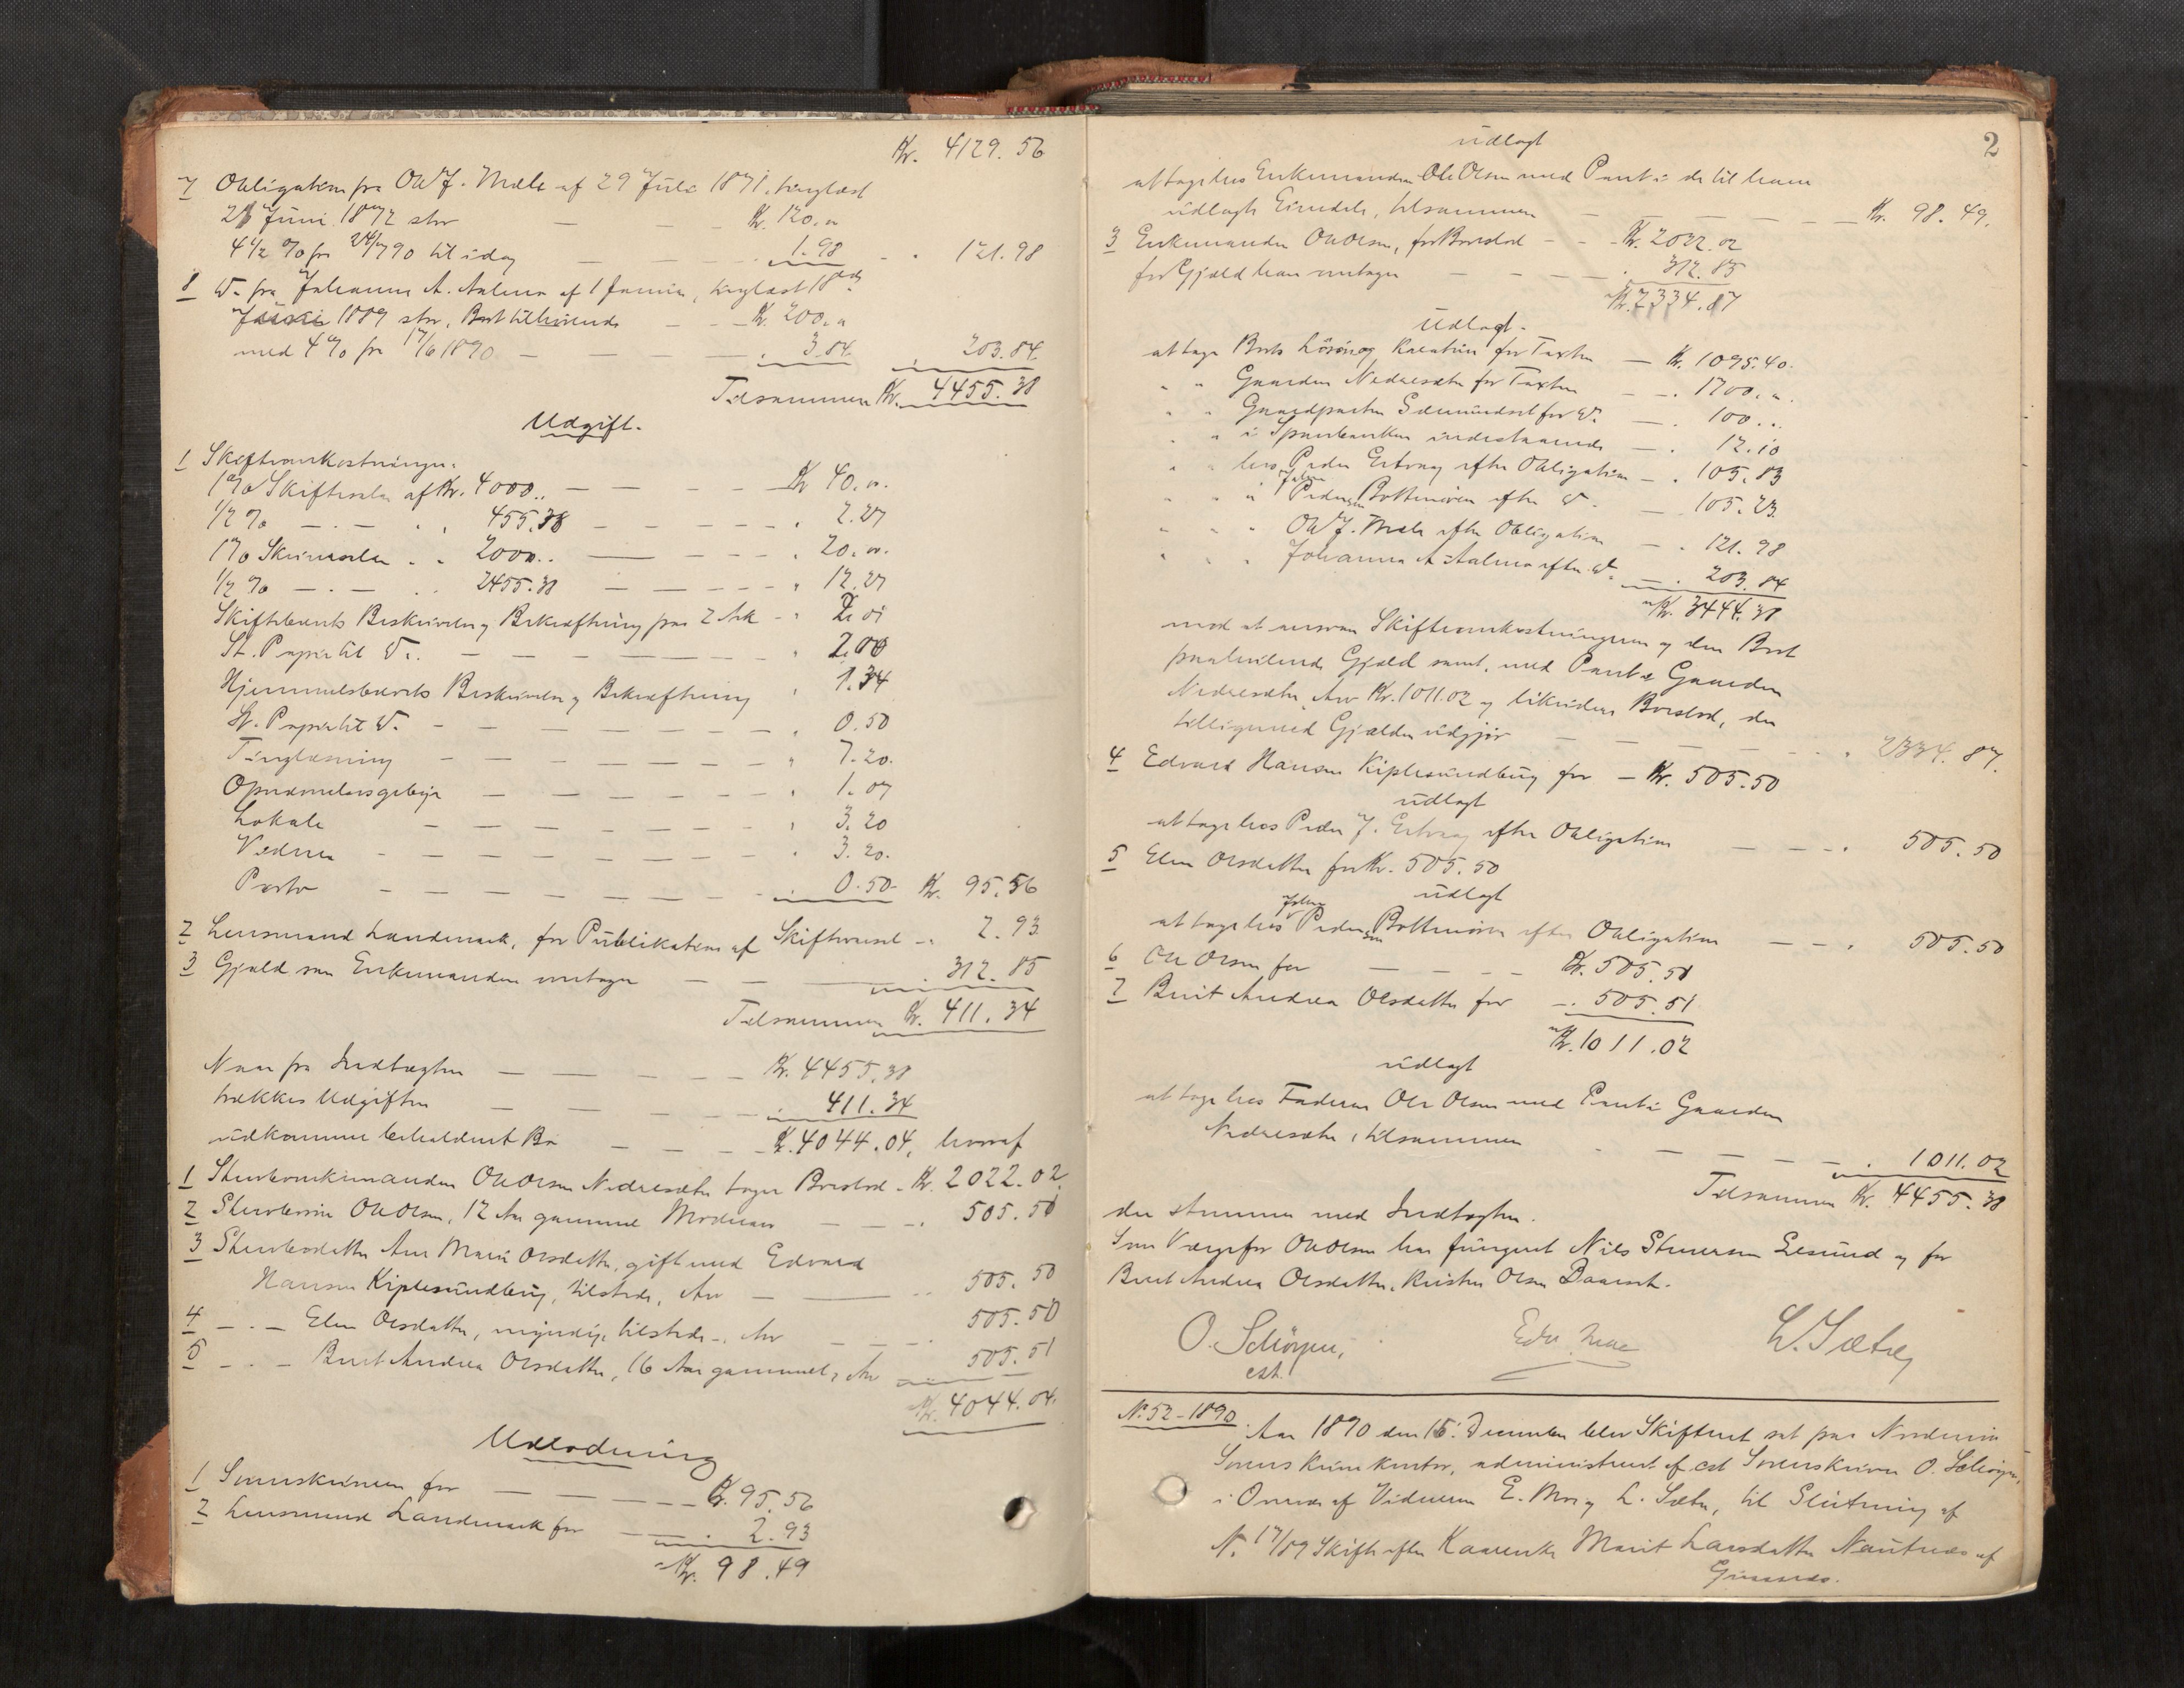 Kr. 4129.56
7 Obligation fra Ole J. Mæle af 29 Juli 1871, tinglæst
26 Juni 1872 stor — — Kr. 120."
4 1/2 % fra 24/7 90 til idag — — 1.98 — 121.98
8 Do fra Johanna A. Aalmo af 1 Junii, tinglæst 18de
1889 stor, Boet tilhørende — — Kr. 200."
med 4 % fra 17/6 1890 — — 3.84 — 203.84
Tilsammen Kr. 4455.38
Udgift.
1 Skifteomkostninger.
1 % Skiftesalær af Kr. 4000.. — — Kr. 40."
1/2 % — . — . . 455.38 — — 2.27
1 % Skriversalær . . 2000.. — — 20."
1/2 % — . — . . 2455.38 — — 12.27
Skiftebrevets Beskrivelse og Bekræftning paa 2 Ark — 2.01
St. Papir til Do. — — 2.00
Hjemmelsbrevets Beskrivelse og Bekræftning 1.34
St. Papir til Do. — — 0.50
Tinglæsning — — 7.20.
Opnævnelsesgebyr — — 1.07
Lokale — — 3.20
Vidner — — 3.20.
Porto — — 0.50 Kr. 95.56
2 Lensmand Landmark, for Publikation af Skiftevarsel — 2.93
3 Gjæld som Enkemanden vedtager — — 312.85
Tilsammen Kr. 411.34
Naar fra Indtægten — — Kr. 4455.38
trækkes Udgiften — — 411.34
udkommer beholdent Bo — — Kr. 4044.04, hvoraf
1 Stervboenkemanden Ole Olsen Nedresæter tager Boeslod — Kr. 2022.02
2 Stervbosøn Ole Olsen, 12 Aar gammel Mødrearv — — 505.50
3 Stervbodatter Ane Marie Olsdatter, gift med Edvard
Hansen Kiplesundbug, tilstede, Arv — — 505.50
4 — . — Elen Olsdatter, myndig, tilstede — Arv — — 505.50
5 — . — Berit Andrea Olsdatter, 16 Aar gammel, Arv 505.51
Kr. 4044.04.
Udlodning
1 Sorenskriveren for — — Kr. 95.56
2 Lensmand Landmark for — — 2.93
Kr. 98.49
2
udlagt
at tage hos Enkemanden Ole Olsen med Pant i de til ham
udlagte Eiendele, tilsammen — — Kr. 98.49.
3 Enkemanden Ole Olsen, for Boeslod — — Kr. 2022.02
for Gjæld han vedtager — — 312.85
Kr. 2334.87
Udlagt.
at tage Boets Løsøre og Kreature for Taxten — Kr. 1095.40.
" " Gaarden Nedresæter for Taxten — 1700.".
" " Gaardparten Sæmundset for Do. — 100..
" " i Sparebanken indestaaende — 12.10
" " hos Peder Ertvaag efter Obligation — 105.83
" " " Peder Johansen Bottenøren efter Do. — 105.23
" " " Ole J. Mæle efter Obligation — 121.98
" " " Johanna A. Aalmo efter Do. — 203.84
Kr. 3444.38
mod at ansvare Skifteomkostningerne og den Boet
paahvilende Gjæld samt, med Pant i Gaarden
Nedresæter, Arv Kr. 1011.02 og likvidere Boeslod, der
tilligemed Gjælden udgjør — — 2334.87.
4 Edvard Hansen Kiplesundbug for — Kr. 505.50
udlagt
at tage hos Peder J. Ertvaag efter Obligation — — 505.50
5 Elen Olsdatter for Kr. 505.50
udlagt
at tage hos Peder Johansen Bottenøren efter Obligation — — 505.50
6 Ole Olsen for — — Kr. 505.51
7 Berit Andrea Olsdatter for — 505.51
Kr. 1011.02
udlagt
at tage hos Faderen Ole Olsen med Pant i Gaarden
Nedresæter, tilsammen — — 1011.02
Tilsammen Kr. 4455.38
der stemmer med Indtægten.
Som Værge for Ole Olsen har fungeret Nils Steversen Lesund og for
Berit Andrea Olsdatter, Kristen Olsen
O. Schrøyen,
cst.
L. Sæter
No 52-1890. Aar 1890 den 15. December blev Skifteret sat paa Nordmøre
Sorenskriverkontor, administreret af cst Sorenskriver O.
i Overvær af Vidnerne E. Moe og L. Sæter, til Slutning af
No 17/89 Skifte efter Marit Larsdatter af